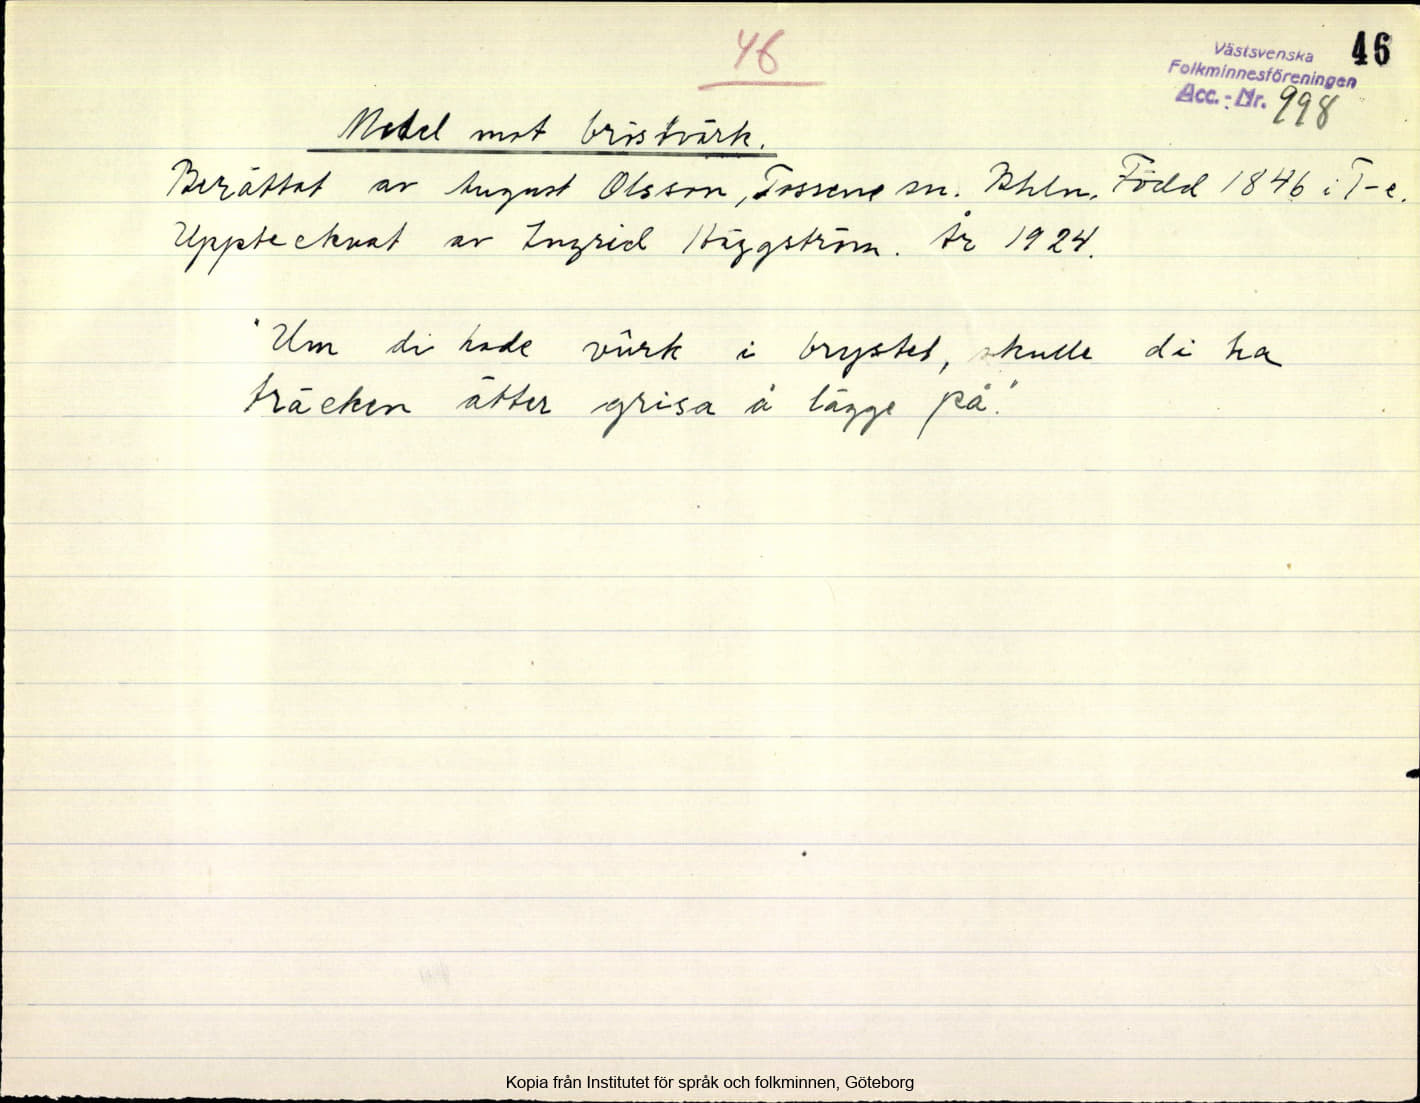 46
46
Västsvenska
Folkminnesföreningen
Acc.-Nr. 998
Medel mot bröstvärk.
Berättat av August Olsson, Tossene sn. Bhln. Född 1846 i T-e.
Uppteeknat av Ingrid Häggström. År 1924.
"Um di hade värk i brystet, skulle di ha
träcken ätter grisa å lägge på."
Kopia från Institutet för språk och folkminnen, Göteborg